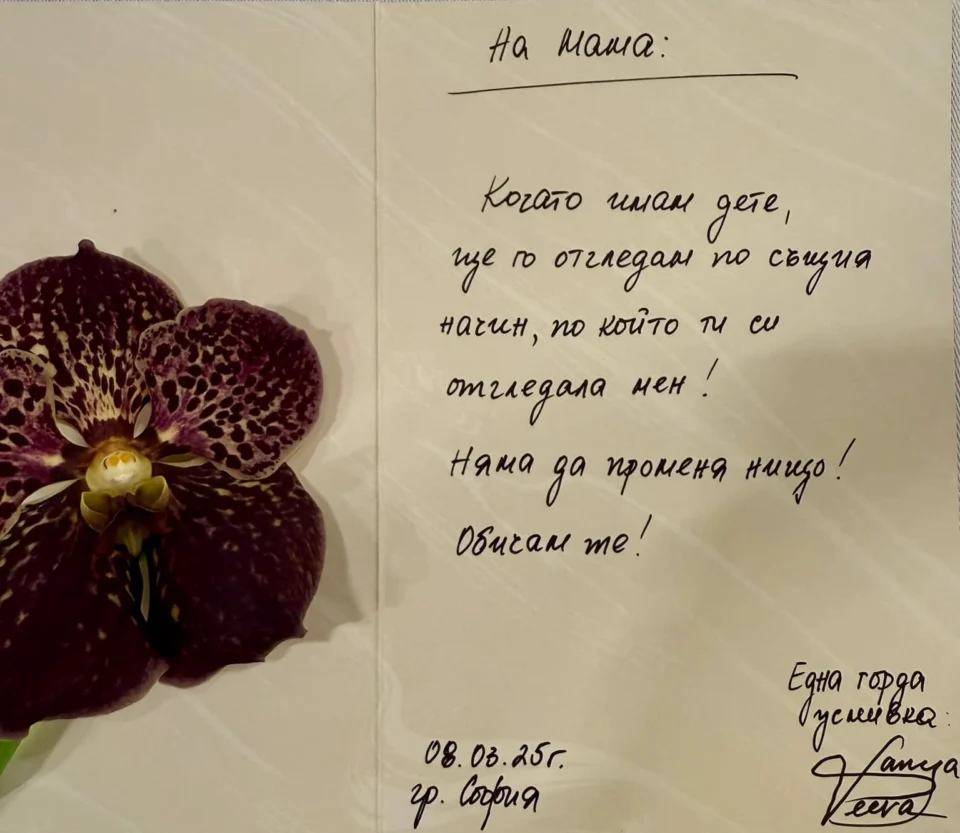 На Мама:
Когато имам дете,
ще го отгледам по същия
начин, по който ти си
отгледала мен!
Няма да променя нищо!
Обичам те!
Една горда
усмивка:
08.03.25г.
гр. София